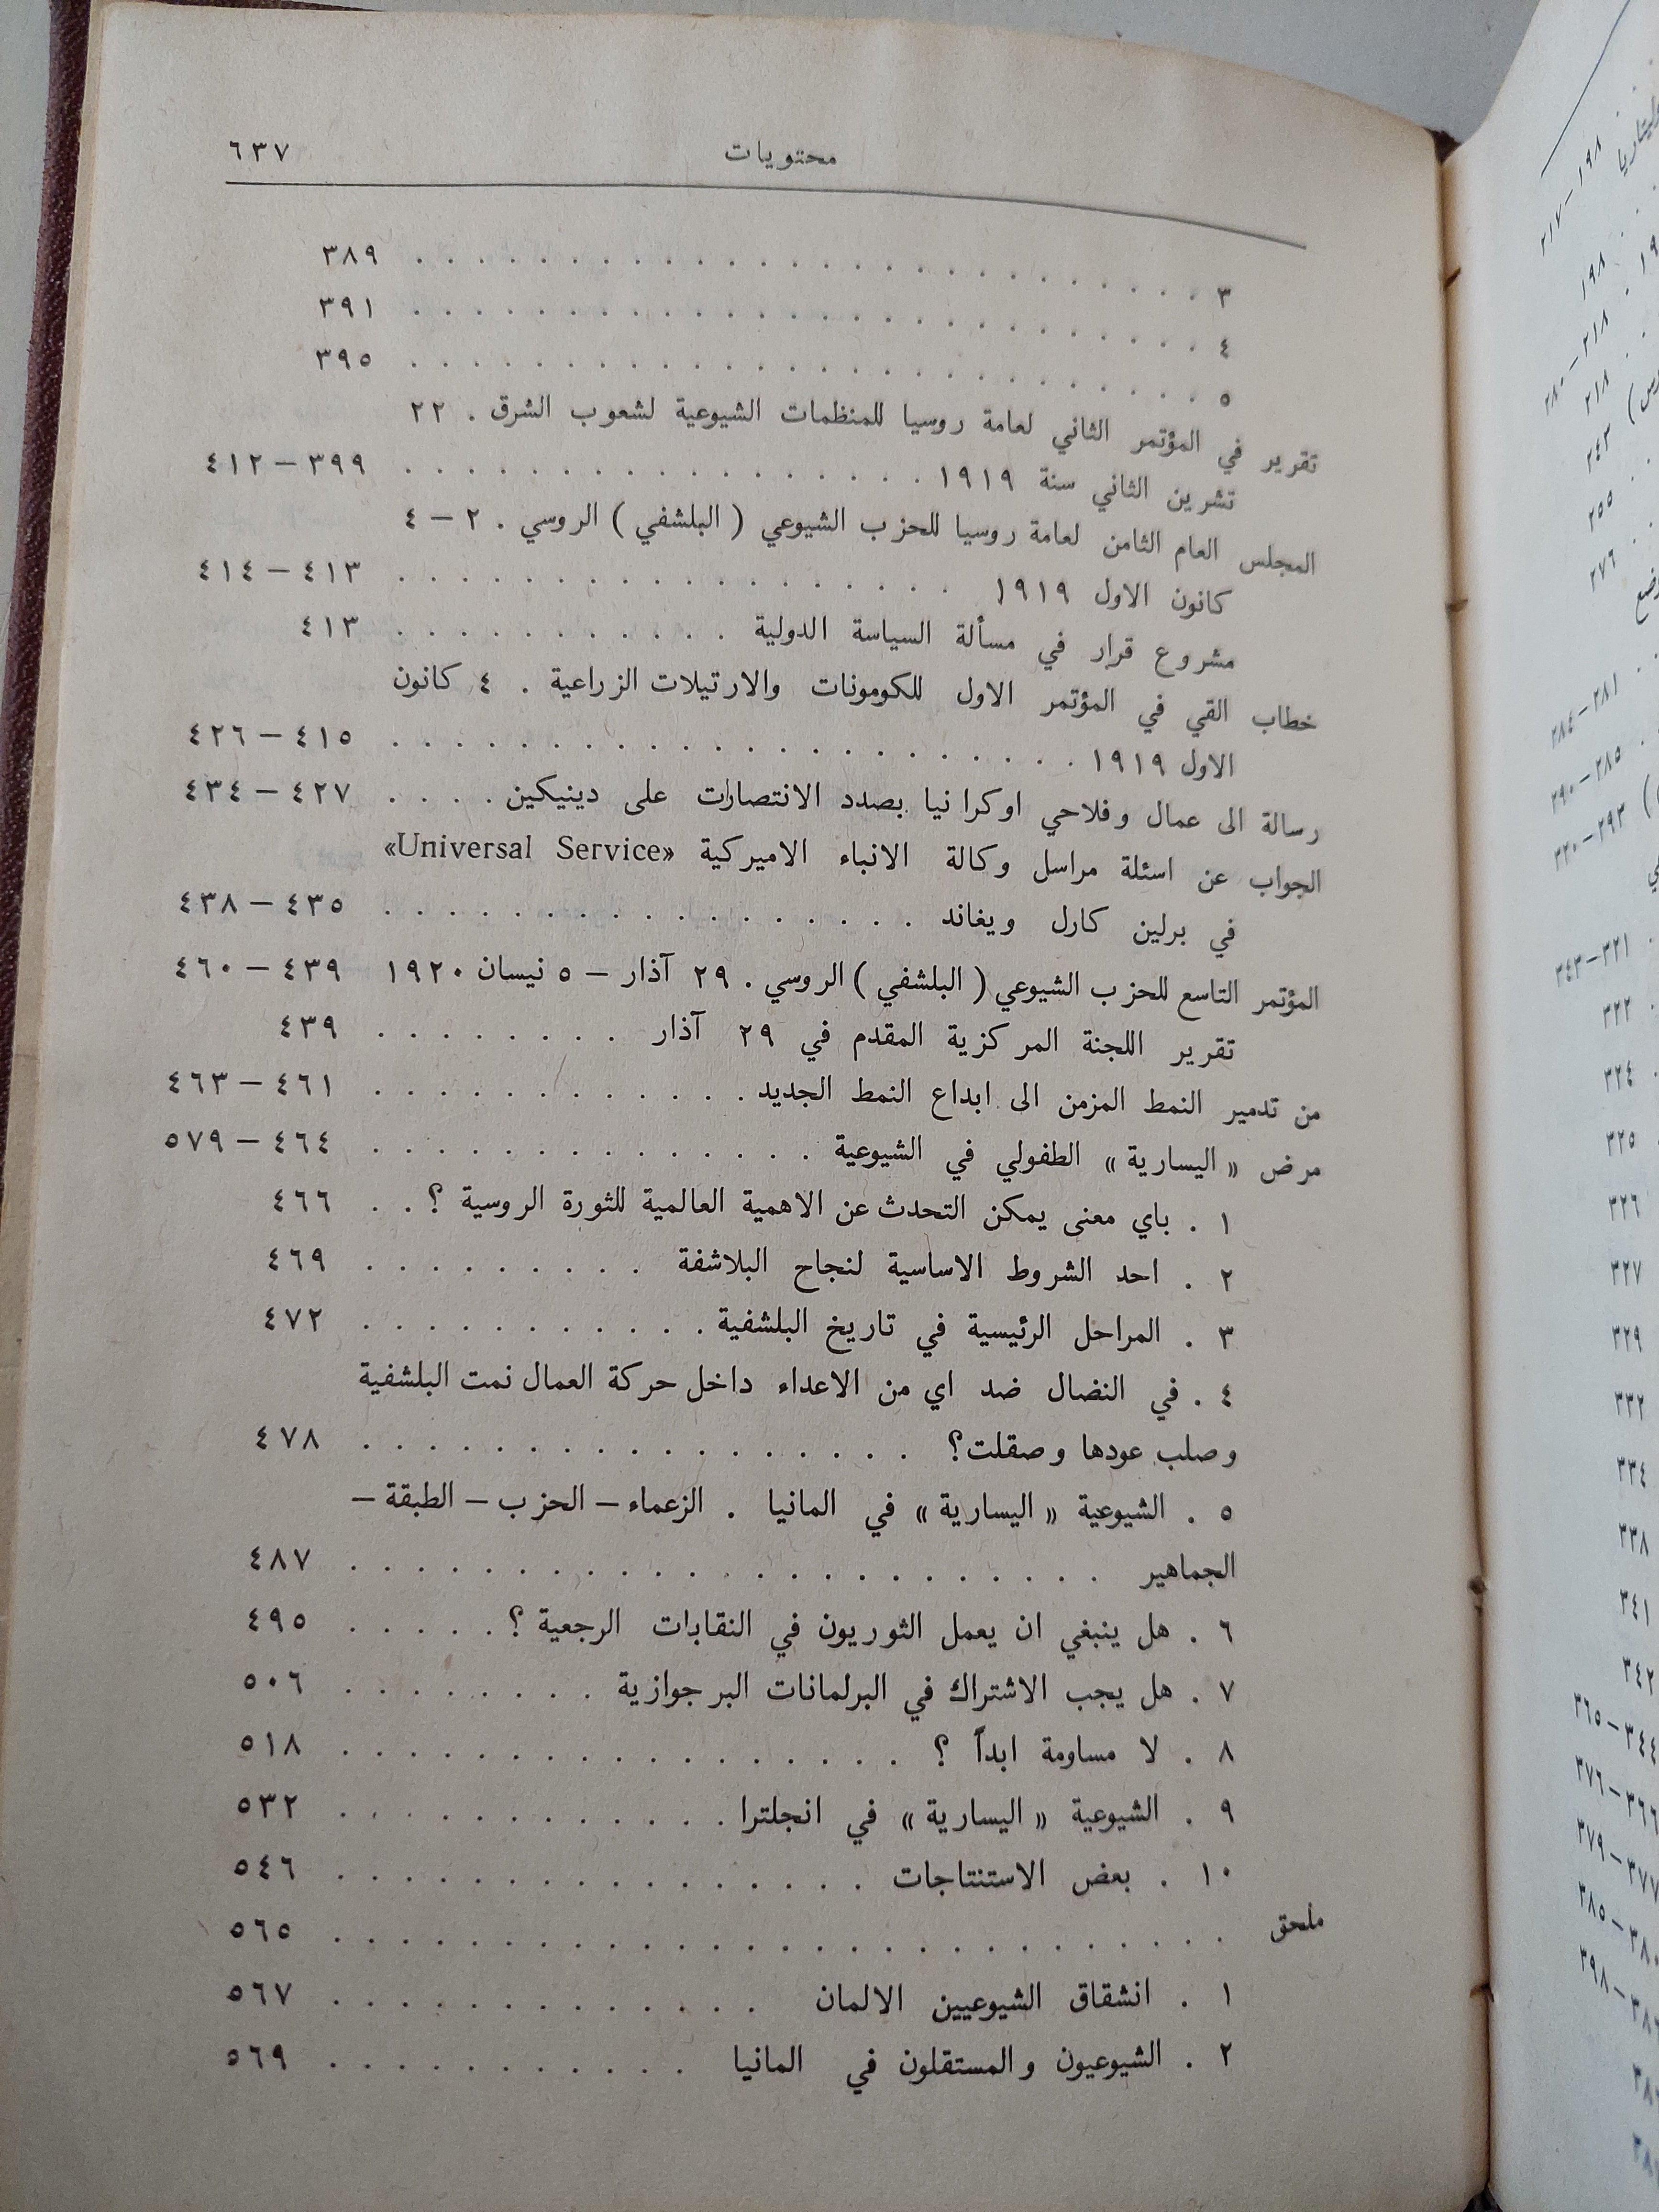 محتويات ٦٣٧
٣ . . . . . . . . . . . . . . . . . . . . . . . . . ٣٨٩
٤ . . . . . . . . . . . . . . . . . . . . . . . . . ٣٩١
٥ . . . . . . . . . . . . . . . . . . . . . . . . . ٣٩٥
تقرير في المؤتمر الثاني لعامة روسيا للمنظمات الشيوعية لشعوب الشرق . ٢٢
تشرين الثاني سنة ١٩١٩ . . . . . . . . . . . . . . . . ٣٩٩ – ٤١٢
المجلس العام الثامن لعامة روسيا للحزب الشيوعي ( البلشفي ) الروسي . ٢ – ٤
كانون الاول ١٩١٩ . . . . . . . . . . . . . . . . . ٤١٣ – ٤١٤
مشروع قرار في مسألة السياسة الدولية . . . . . . . . . . . ٤١٣
خطاب القي في المؤتمر الاول للكومونات والارتيلات الزراعية . ٤ كانون
الاول ١٩١٩ . . . . . . . . . . . . . . . . . . . . . ٤١٥ – ٤٢٦
رسالة الى عمال وفلاحي اوكرانيا بصدد الانتصارات على دينيكين . . . . ٤٢٧ – ٤٣٤
الجواب عن اسئلة مراسل وكالة الانباء الاميركية «Universal Service»
في برلين كارل ويغاند . . . . . . . . . . . . . . . . . ٤٣٥ – ٤٣٨
المؤتمر التاسع للحزب الشيوعي ( البلشفي ) الروسي . ٢٩ آذار – ٥ نيسان ١٩٢٠ ٤٣٩ – ٤٦٠
تقرير اللجنة المركزية المقدم في ٢٩ آذار . . . . . . . . ٤٣٩
من تدمير النمط المزمن الى ابداع النمط الجديد . . . . . . . . . . . . ٤٦١ – ٤٦٣
مرض « اليسارية » الطفولي في الشيوعية . . . . . . . . . . . . . . ٤٦٤ – ٥٧٩
١ . باي معنى يمكن التحدث عن الاهمية العالمية للثورة الروسية ؟ . . ٤٦٦
٢ . احد الشروط الاساسية لنجاح البلاشفة . . . . . . . . . ٤٦٩
٣ . المراحل الرئيسية في تاريخ البلشفية . . . . . . . . . . . ٤٧٢
٤ . في النضال ضد اي من الاعداء داخل حركة العمال نمت البلشفية
وصلب عودها وصقلت؟ . . . . . . . . . . . . . . . . . ٤٧٨
٥ . الشيوعية « اليسارية » في المانيا . الزعماء – الحزب – الطبقة –
الجماهير . . . . . . . . . . . . . . . . . . . . . . . ٤٨٧
٦ . هل ينبغي ان يعمل الثوريون في النقابات الرجعية ؟ . . . . . ٤٩٥
٧ . هل يجب الاشتراك في البرلمانات البرجوازية . . . . . . . . ٥٠٦
٨ . لا مساومة ابداً ؟ . . . . . . . . . . . . . . . . . ٥١٨
٩ . الشيوعية « اليسارية » في انجلترا . . . . . . . . . . . . ٥٣٢
١٠ . بعض الاستنتاجات . . . . . . . . . . . . . . . . ٥٤٦
ملحق . . . . . . . . . . . . . . . . . . . . . . . . . . ٥٦٥
١ . انشقاق الشيوعيين الالمان . . . . . . . . . . . . . ٥٦٧
٢ . الشيوعيون والمستقلون في المانيا . . . . . . . . . . . ٥٦٩
١٩٨ – ٢١٧
١٩٨
٢١٨ – ٢٨٠
٢١٨
٢٤٣
٢٥٥
٢٧٦
٢٨١ – ٢٨٤
٢٨٥ – ٢٩٠
٢٩٣ – ٣٢٠
٣٢١ – ٣٤٣
٣٢٢
٣٢٤
٣٢٥
٣٢٦
٣٢٧
٣٢٩
٣٣٢
٣٣٤
٣٣٨
٣٤١
٣٤٢
٣٤٤ – ٣٦٥
٣٦٦ – ٣٧٦
٣٧٧ – ٣٧٩